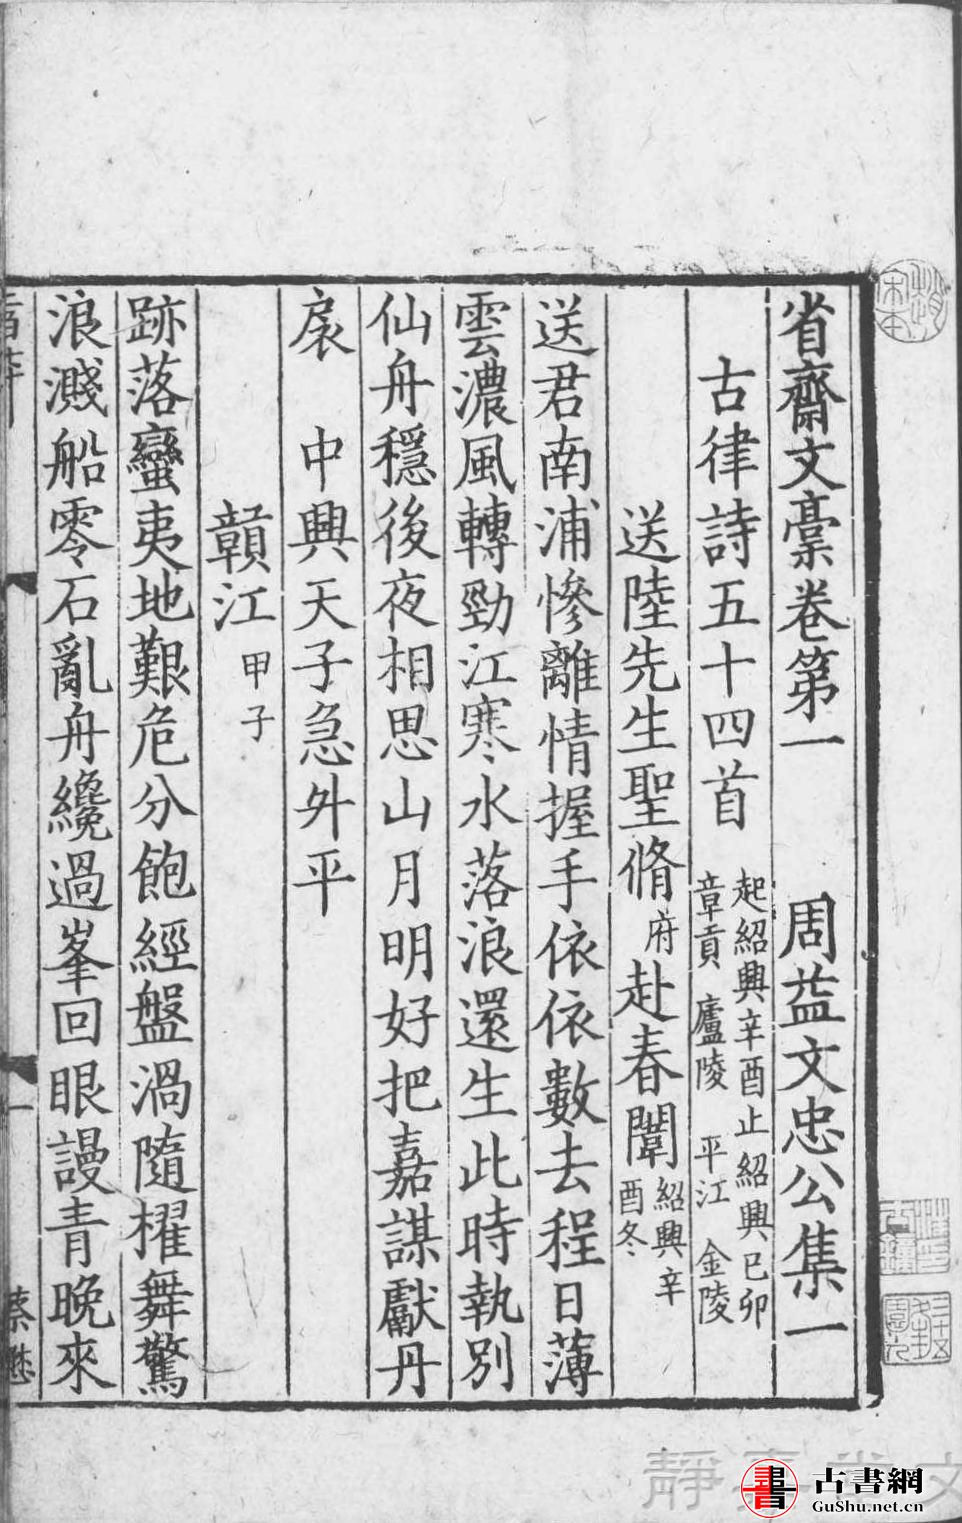 省齋文藁卷第一　周益文忠公集一
古律詩五十四首　起紹興辛酉止紹興己卯
章貢　廬陵　平江　金陵
送陸先生聖脩府赴春闈　紹興辛
酉冬
送君南浦慘離情握手依依數去程日薄
雲濃風轉勁江寒水落浪還生此時執別
仙舟穩後夜相思山月明好把嘉謀獻丹
扆　中興天子急升平
贛江　甲子
跡落蠻夷地艱危分飽經盤渦隨櫂舞驚
浪濺船零石亂舟纔過峯回眼謾青晚來
一
古書網
GuShu.net.cn